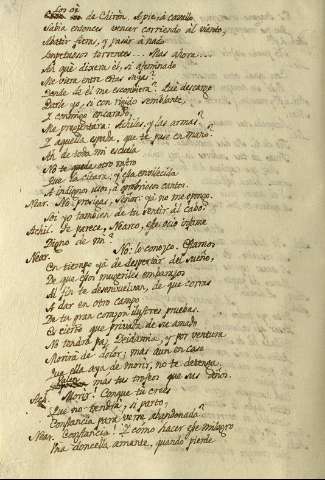 los ojos de Chirón. A pie, ó á cavallo
Sabia entonces vencer corriendo al viento,
Abatir fieras, y pasar á nado
Impetuosos torrentes... Mas ahora...
Ah qué dixera él, si afeminado
Me viera entre estas
Donde de él me escondiera? Qué descargo
Darle yo, si con rigido semblante,
I contigo encarado,
Me preguntara: Achiles, y las armas?
I aquella espada, que te puse en mano?
Ah de toda mi escuela
No te queda otro rastro
Que la cítara; y esa envilecida
A indignos usos, á amorosos cantos.
Near. No prosigas, Señor: ya no me opongo.
Soi yo tambien de tu sentir al cabo.
Achil. Te parece, Nearco, ese ocio infame
Digno de mi?
Near. No: lo conozco. Claro,
En tiempo ya de despertar del sueño,
De que esos mugeriles embarazos
Al fin te desenvuelvan, de que corras
A dar en otro campo
De tu gran corazon ilustres pruebas.
Es cierto que privada de su amado
No tendrá paz Deidamia, y por ventura
Morirá de dolor; mas aun en caso
Que ella aya de morir, no te detenga.
Valen mas tus trofeos que sus
Ach. Morir? Conque tú crees
Que no tendrá, si parto,
Constancia para verse abandonada?
Near. Constancia! I cómo hacer ese milagro
Una doncella amante, quando pierde